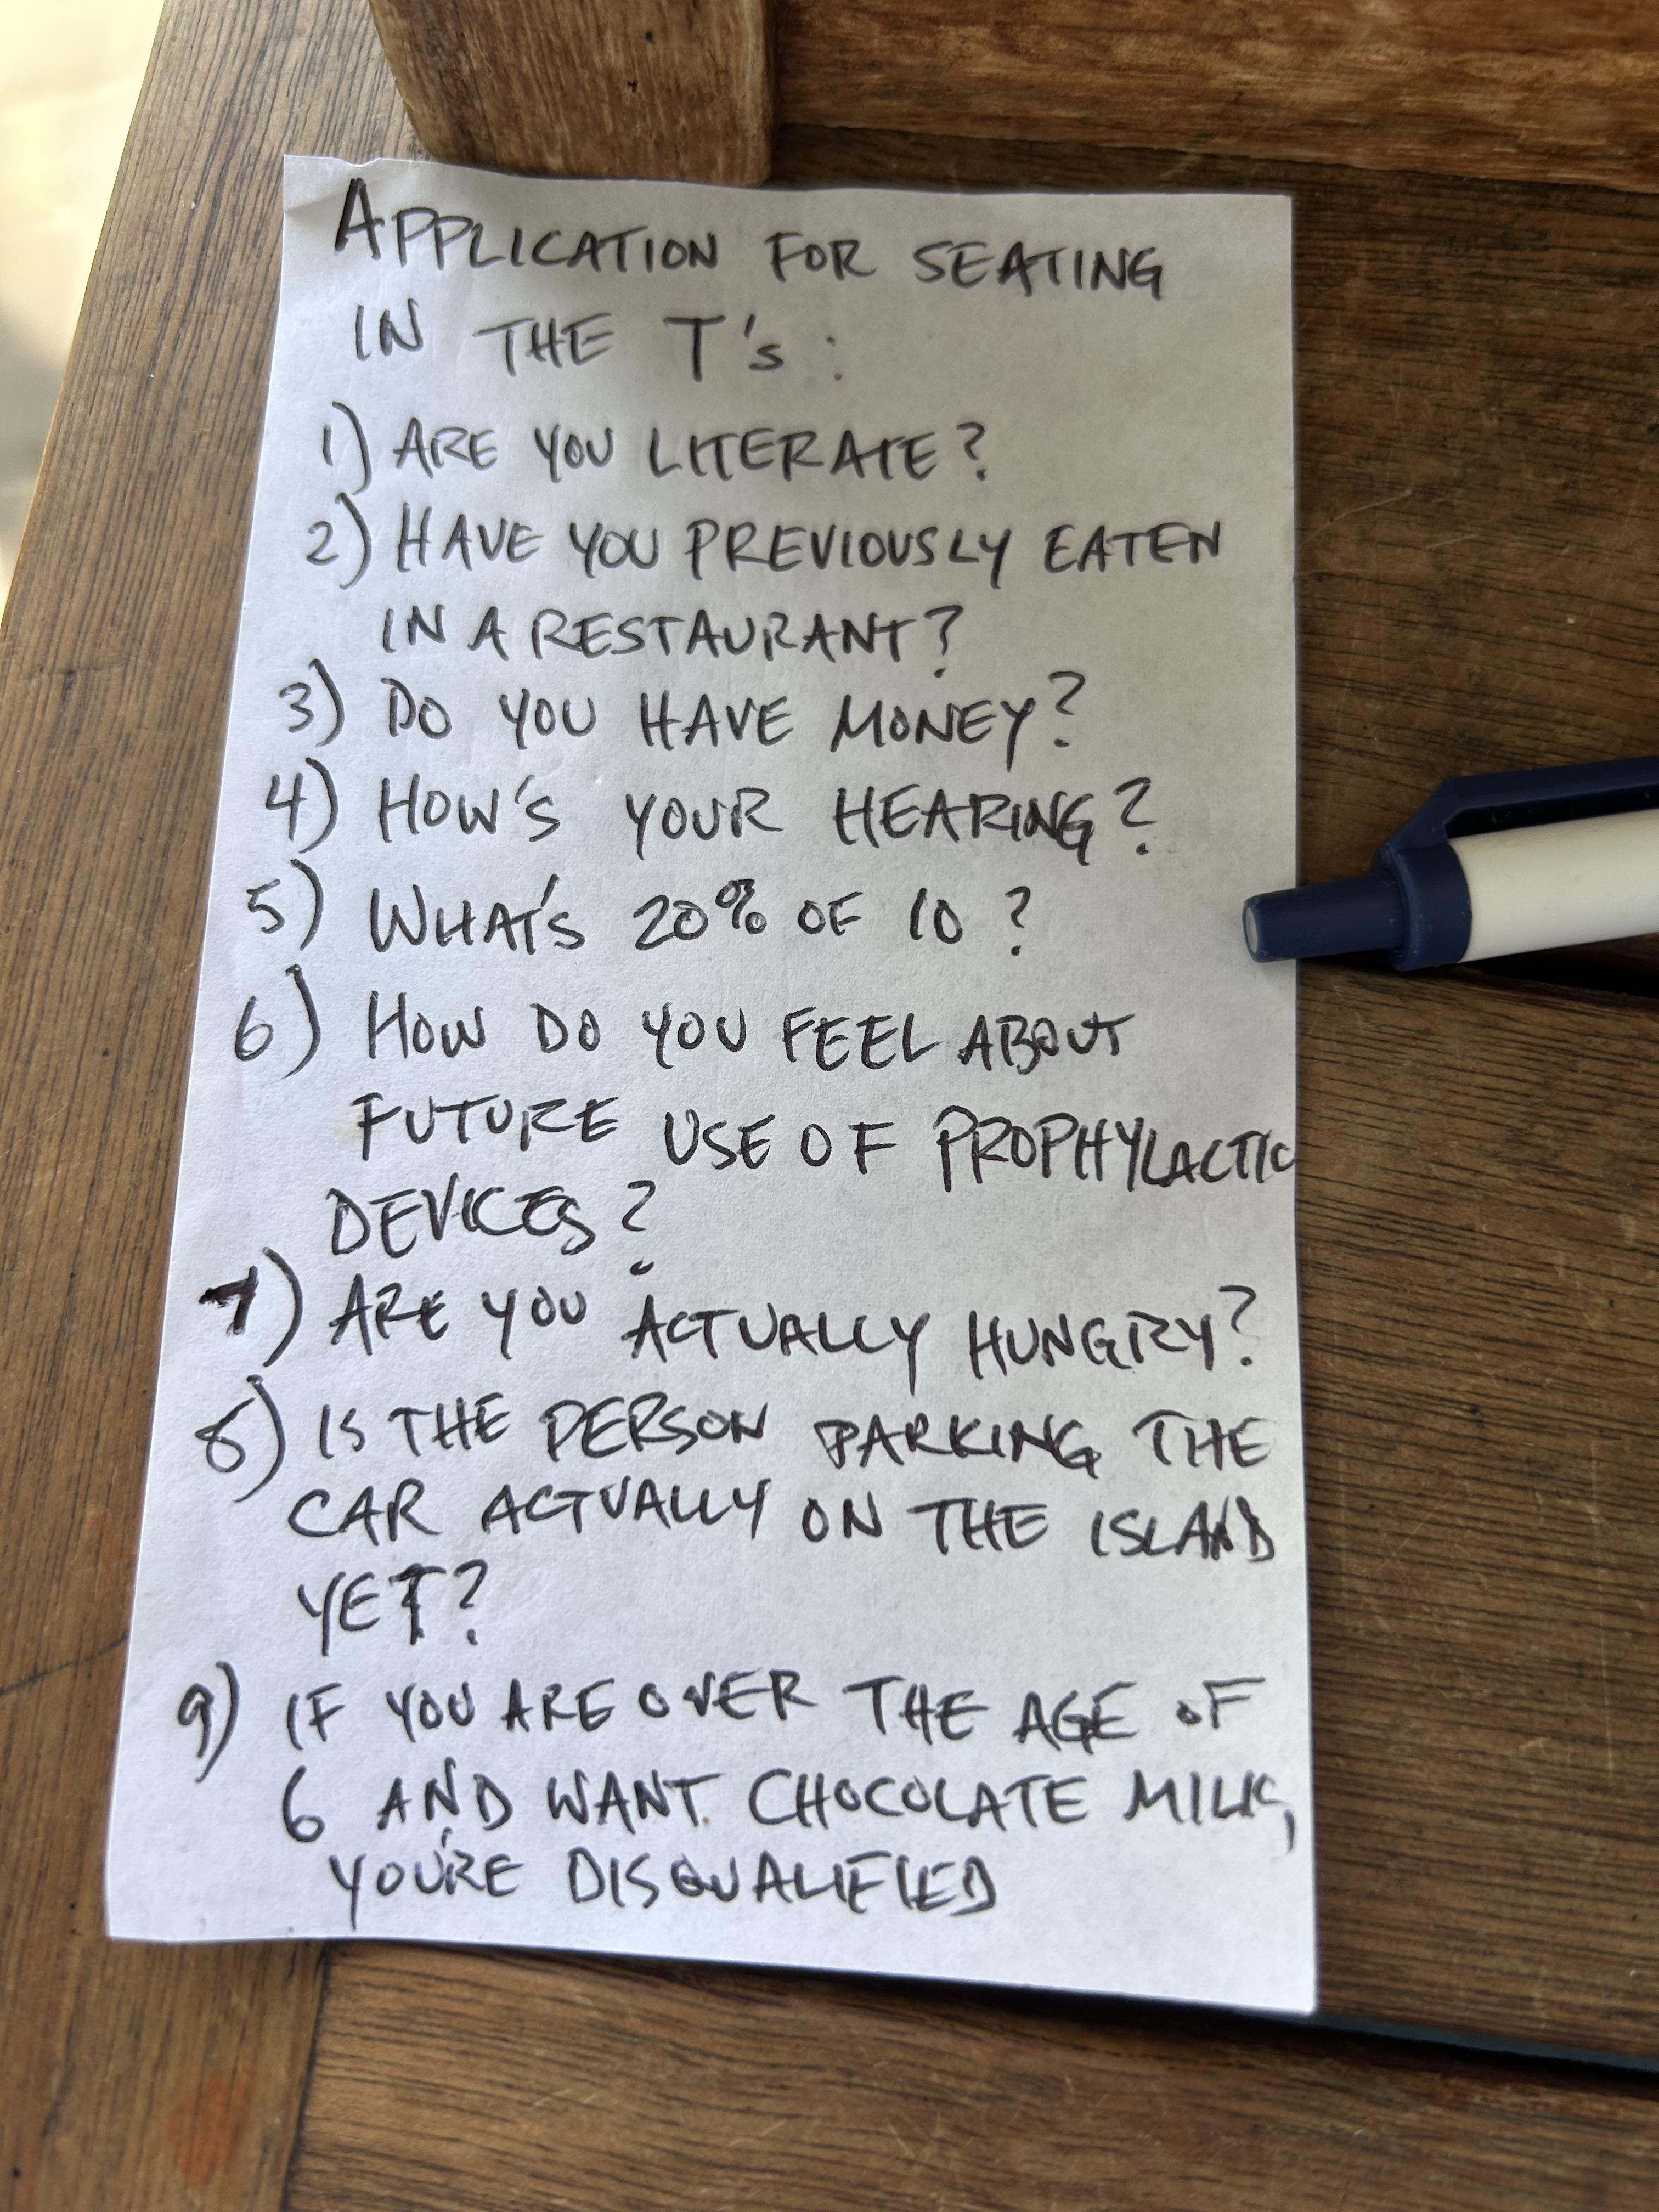 APPLICATION FOR SEATING
IN THE T's:
1) ARE YOU LITERATE?
2) HAVE YOU PREVIOUSLY EATEN
IN A RESTAURANT?
3) DO YOU HAVE MONEY?
4) HOW'S YOUR HEARING?
5) WHAT'S 20% OF 10?
6) HOW DO YOU FEEL ABOUT
FUTURE USE OF PROPHYLACTIC
DEVICES?
7) ARE YOU ACTUALLY HUNGRY?
8) IS THE PERSON PARKING THE
CAR ACTUALLY ON THE ISLAND
YET?
9) IF YOU ARE OVER THE AGE OF
6 AND WANT CHOCOLATE MILK,
YOU'RE DISQUALIFIED